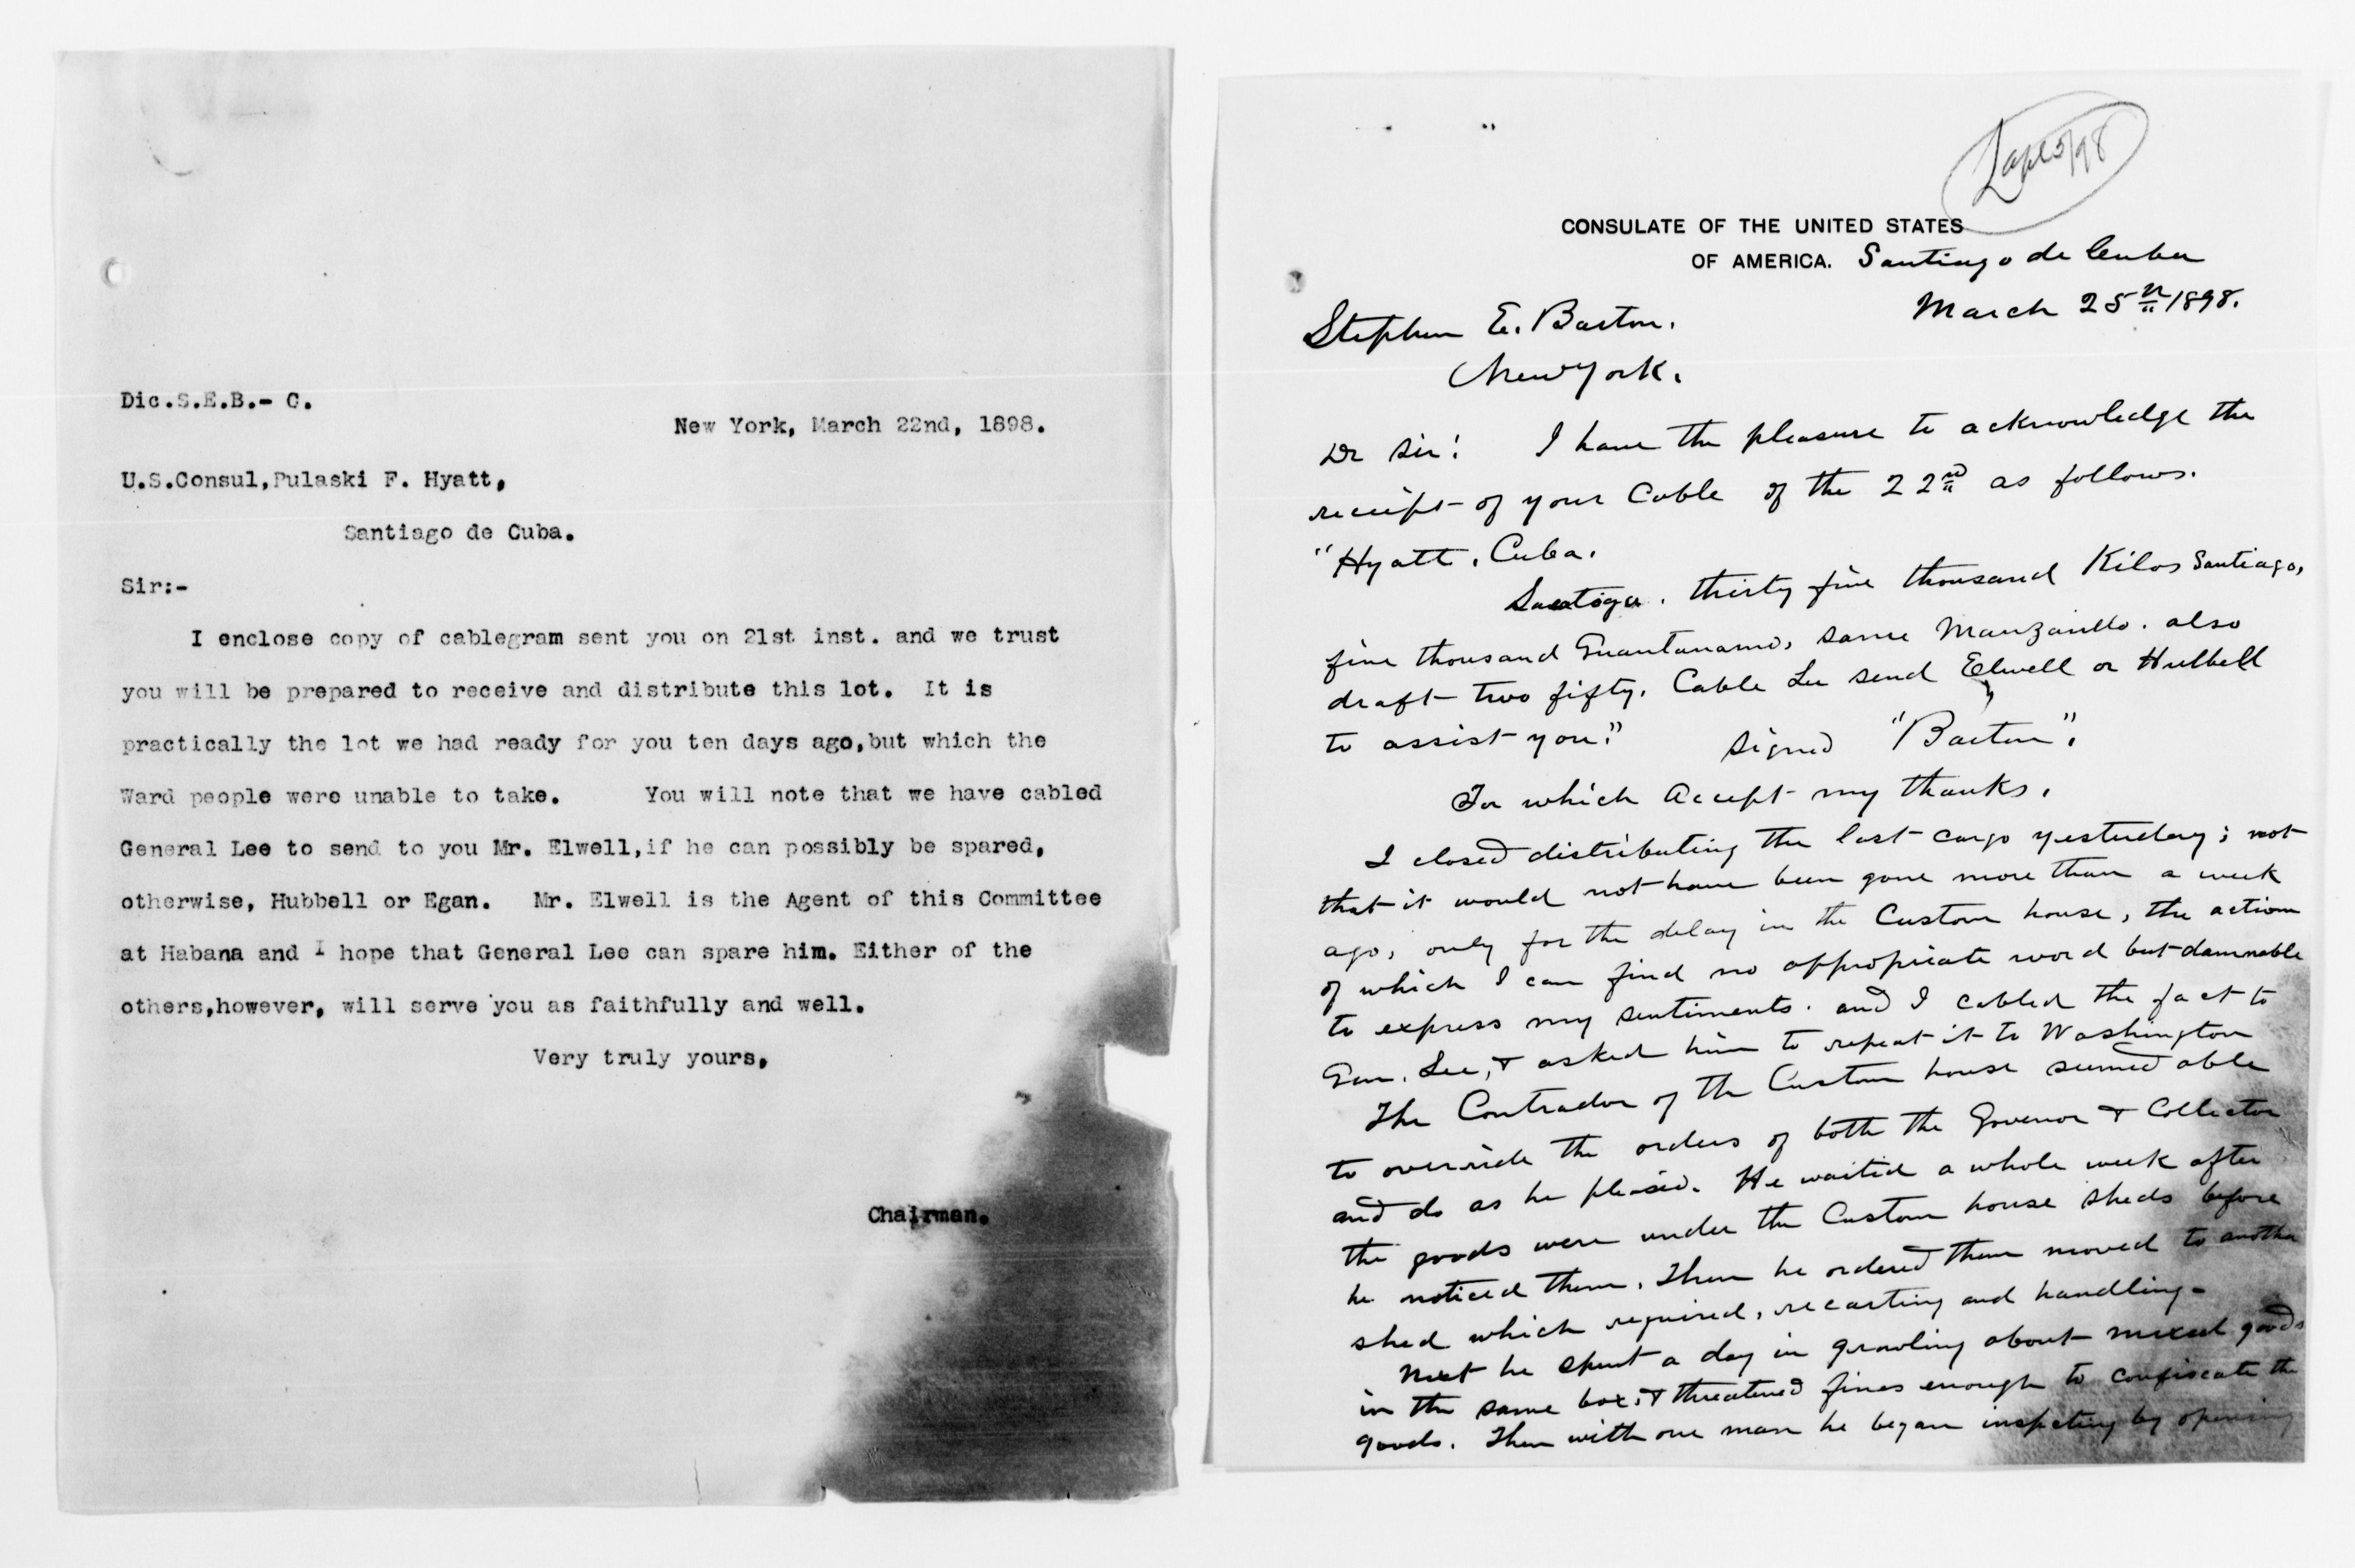 Dic.S.E.B.- C.
New York, March 22nd, 1898.
U.S.Consul,Pulaski F. Hyatt,
Santiago de Cuba.
Sir:-
I enclose copy of cablegram sent you on 21st inst. and we trust
you will be prepared to receive and distribute this lot. It is
practically the lot we had ready for you ten days ago,but which the
Ward people were unable to take. You will note that we have cabled
General Lee to send to you Mr. Elwell,if he can possibly be spared,
otherwise, Hubbell or Egan. Mr. Elwell is the Agent of this Committee
at Habana and I hope that General Lee can spare him. Either of the
others,however, will serve you as faithfully and well.
Very truly yours,
Chairman.
CONSULATE OF THE UNITED STATES
OF AMERICA. Santiago de Cuba
March 25th 1898.
Stephen E. Barton.
New York.
Dr Sir! I have the pleasure to acknowledge the
receipt of your Cable of the 22nd as follows.
"Hyatt. Cuba.
Saratoga. thirty five thousand Kilos Santiago,
five thousand Guantanamo, same Manzanillo. also
draft two fifty. Cable Lee send Elwell or Hubbell
to assist you." signed "Barton".
For which accept my thanks.
I closed distributing the last cargo yesterday; not
that it would not have been gone more than a week
ago, only for the delay in the Custom house, the action
of which I can find no appropriate word but damnable
to express my sentiments. and I cabled the fact to
Gen. Lee, & asked him to repeat it to Washington
The Contrador of the Custom house seemed able
to override the orders of both the Govenor & Collector
and do as he pleased. He waited a whole week after
the goods were under the Custom house sheds before
he noticed them. Then he ordered them moved to another
shed which required, recarting and handling-
Next he spent a day in growling about mixed goods
in the same box, & threatened fines enough to confiscate the
goods. Then with one man he began inspecting by opening